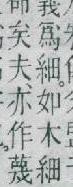 義爲細。如木細
命矣夫、亦作蔑